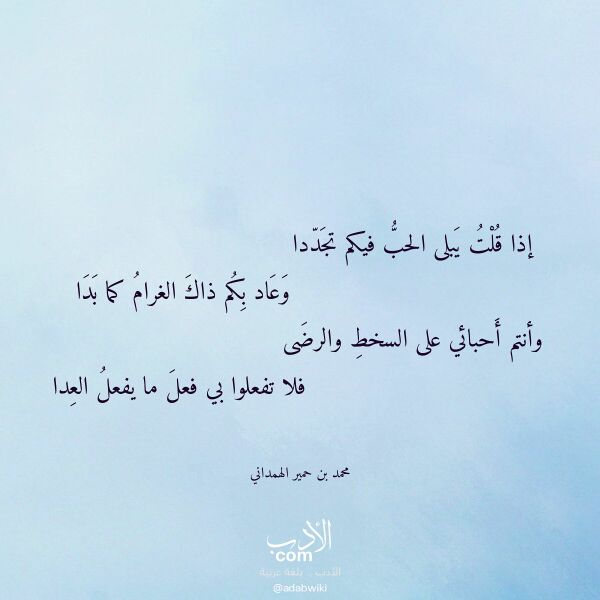 إذا قُلْتُ يَبلى الحبُّ فيكم تجَدّدا
وَعَاد بِكُم ذاكَ الغرامُ كما بَدَا
وأنتم أَحبائي على السخطِ والرضَى
فلا تفعلوا بي فعلَ ما يفعلُ العِدا
محمد بن حمير الهمداني
الأدب
com
الأدب .. بلغة عربية
@adabwiki